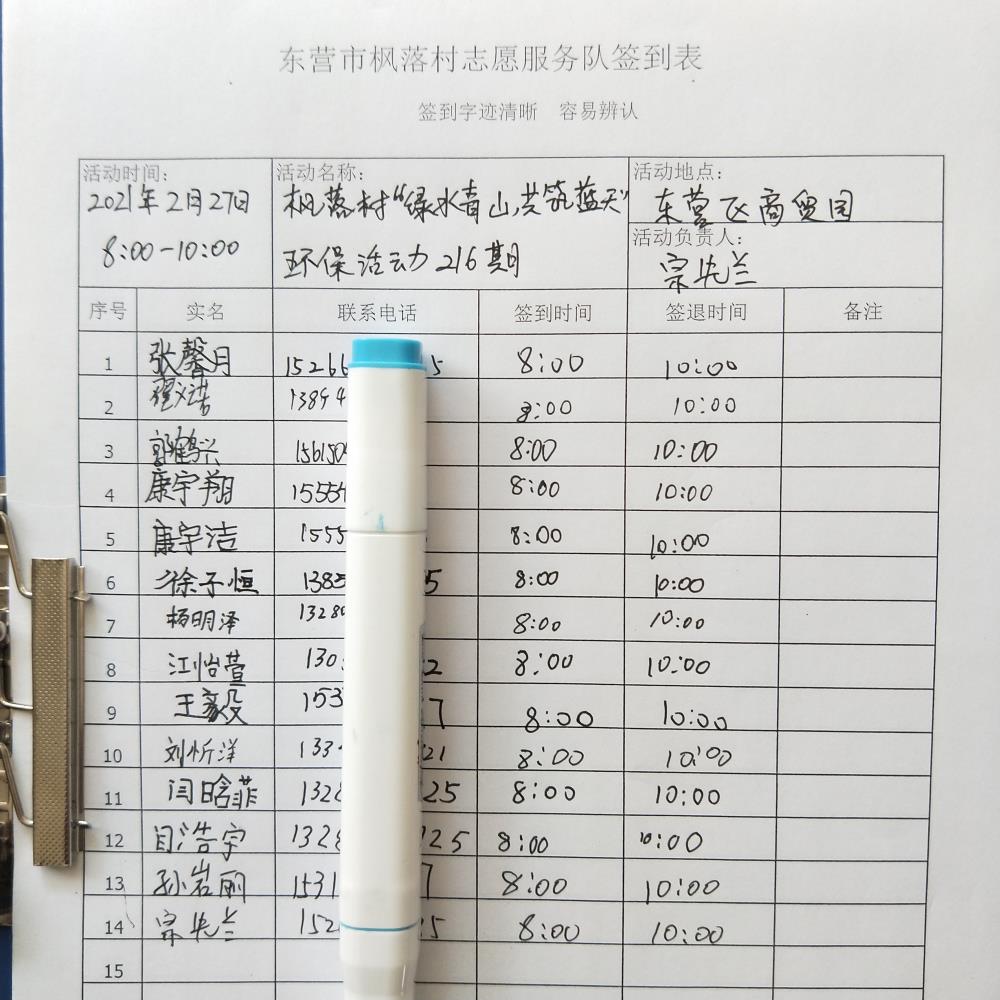 东营市枫落村志愿服务队签到表
签到字迹清晰 容易辨认
活动时间：
2021年2月27日
8:00-10:00
活动名称：
枫落村“绿水青山,共筑蓝天”
环保活动216期
活动地点：
东营区商贸园
活动负责人：
宗先兰
序号 实名 联系电话 签到时间 签退时间 备注
1 张馨月 15266 5 8:00 10:00
2 13894 8:00 10:00
3 郭鹤兴 156150 8:00 10:00
4 康宇翔 15554 8:00 10:00
5 康宇洁 1555 8:00 10:00
6 徐子恒 1385 5 8:00 10:00
7 杨明泽 1328 8:00 10:00
8 江怡萱 130 2 8:00 10:00
9 王毅 153 7 8:00 10:00
10 刘忻洋 133 21 8:00 10:00
11 闫晗菲 1328 25 8:00 10:00
12 闫浩宇 1328 125 8:00 10:00
13 孙岩丽 1531 7 8:00 10:00
14 宗先兰 152 5 8:00 10:00
15